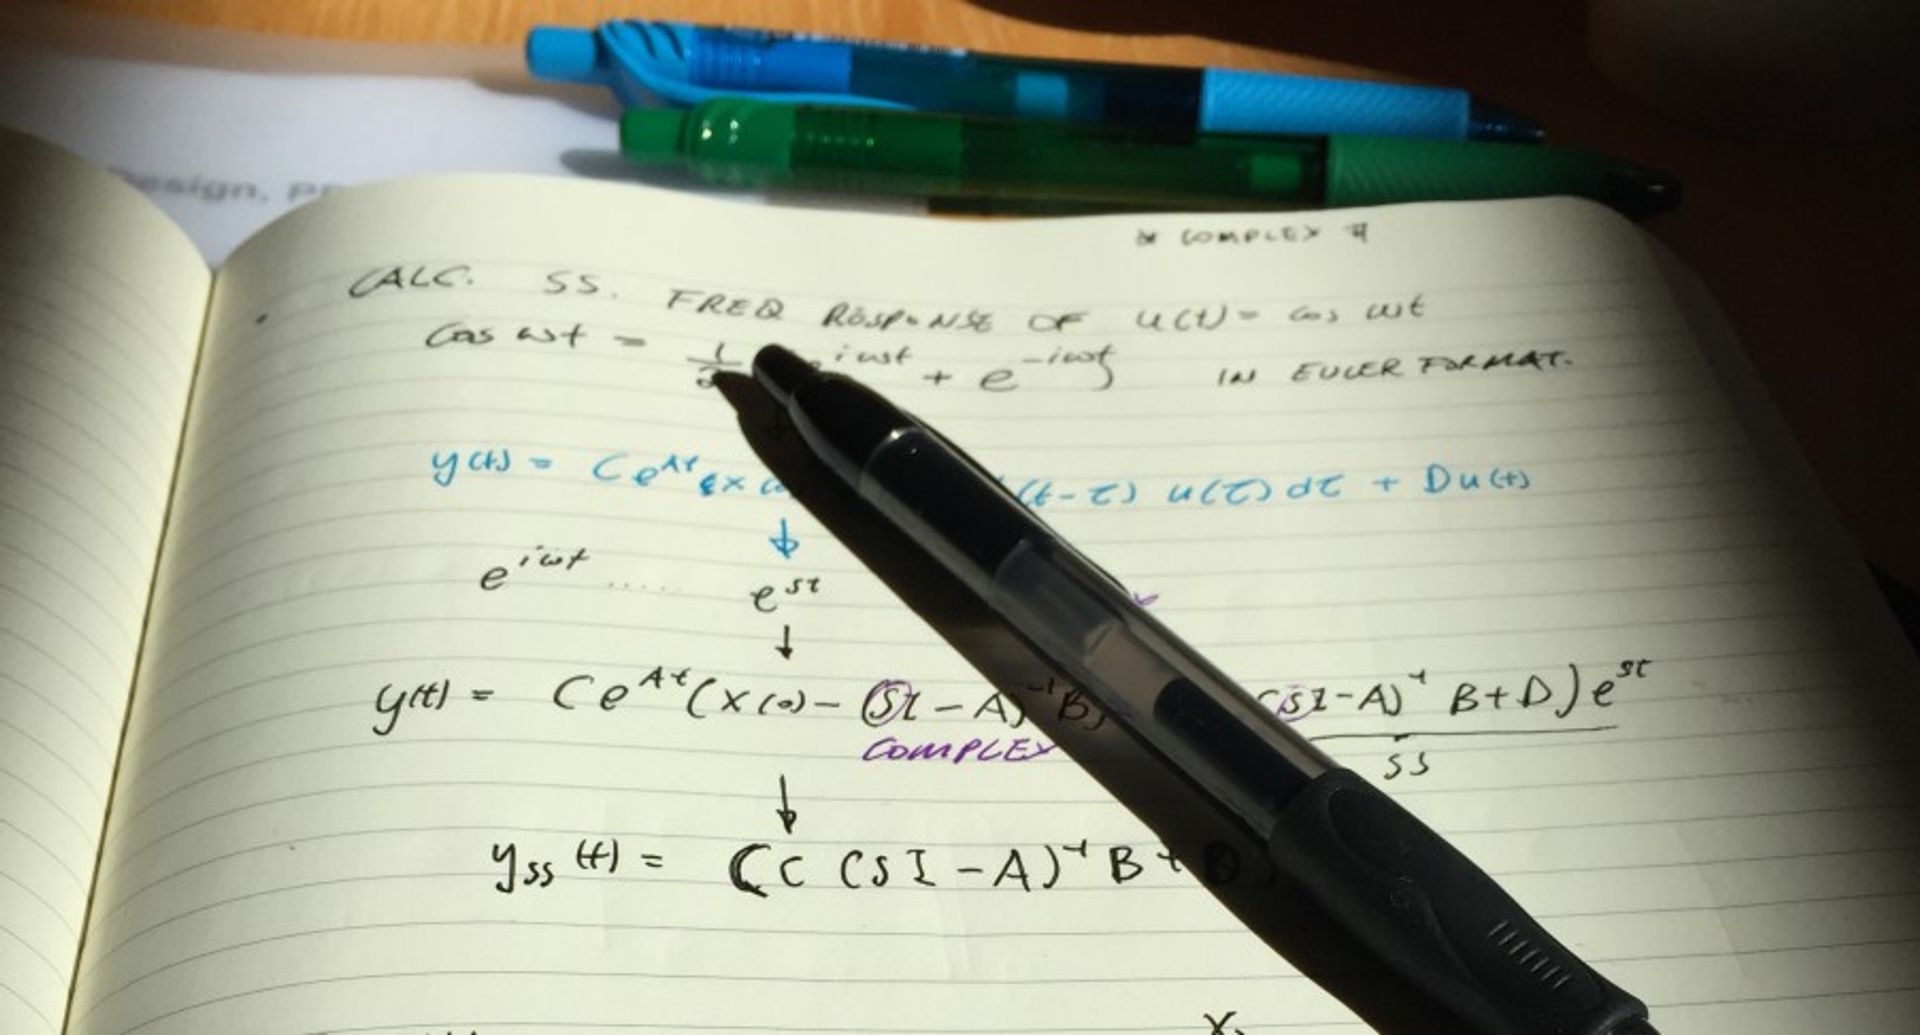 esign, p
* COMPLEX #
CALC. SS. FREQ RESPONSE OF u(t) = cos ωt
Cos ωt = 1/2 e^{iωt} + e^{-iωt} IN EULER FORMAT.
y(t) = Ce^{At} x (t-τ) u(τ) dτ + Du(t)
↓
e^{iωt} ..... e^{st}
↓
y(t) = Ce^{At} (x(0) - (sI - A)^{-1} B) (sI - A)^{-1} B + D) e^{st}
COMPLEX
SS
↓
y_{ss} (t) = (C (sI - A)^{-1} B + D)
X